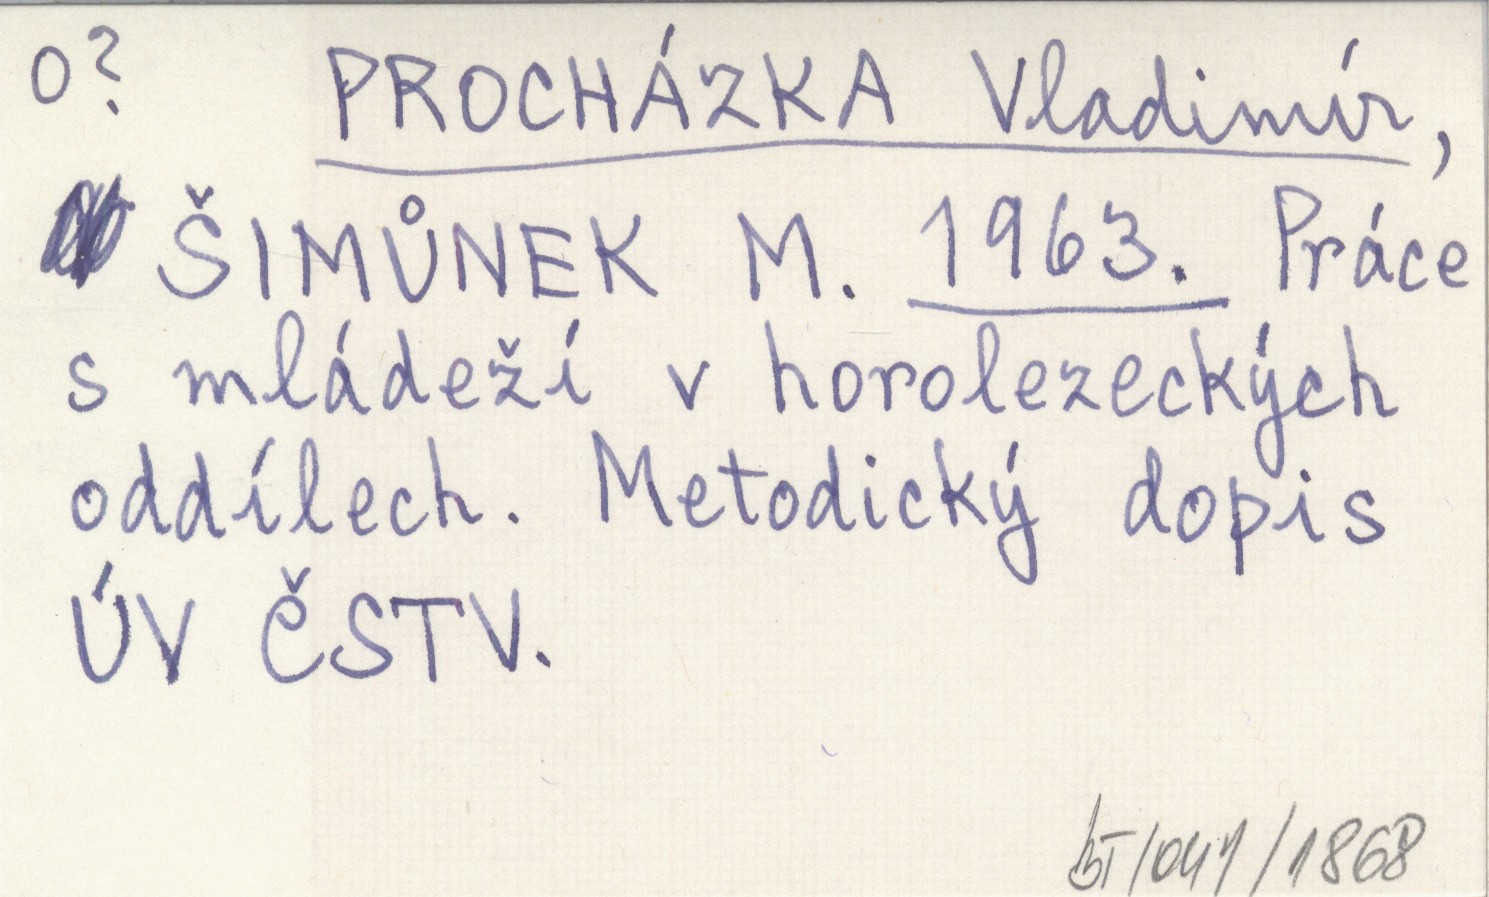 O? PROCHÁZKA Vladimír,
ŠIMŮNEK M. 1963. Práce
s mládeží v horolezeckých
oddílech. Metodický dopis
ÚV ČSTV.
/1868